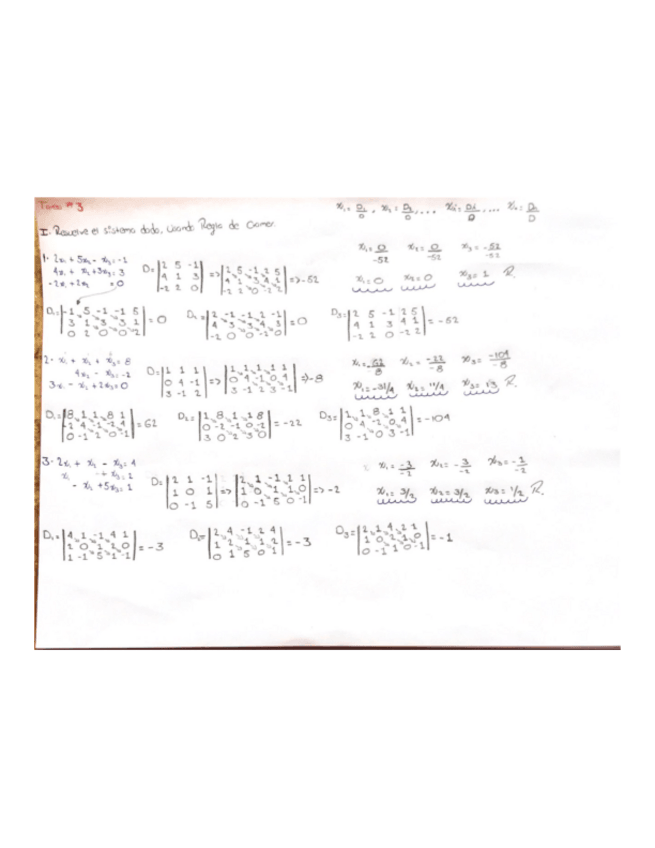 Tarea #3
x₁ = D₁/D , x₂ = D₂/D , ... xᵢ = Dᵢ/D , ... xₙ = Dₙ/D
I. Resuelve el sistema dado, usando Regla de Cramer.
1. 2x₁ + 5x₂ - x₃ = -1
4x₁ + x₂ + 3x₃ = 3
-2x₁ + 2x₂ = 0
D = |2 5 -1| => |2 5 -1 2 5| => -52
|4 1 3| |4 1 3 4 1|
|-2 2 0| |-2 2 0 -2 2|
x₁ = 0/-52 x₂ = 0/-52 x₃ = -52/-52
x₁ = 0 x₂ = 0 x₃ = 1 R.
D₁ = |-1 5 -1 -1 5| = 0
|3 1 3 3 1|
|0 2 0 0 2|
D₂ = |2 -1 -1 2 -1| = 0
|4 3 3 4 3|
|-2 0 0 -2 0|
D₃ = |2 5 -1 2 5| = -52
|4 1 3 4 1|
|-2 2 0 -2 2|
2. x₁ + x₂ + x₃ = 8
4x₂ - x₃ = -2
3x₁ - x₂ + 2x₃ = 0
D = |1 1 1| => |1 1 1 1 1| => -8
|0 4 -1| |0 4 -1 0 4|
|3 -1 2| |3 -1 2 3 -1|
x₁ = 62/-8 x₂ = -22/-8 x₃ = -104/-8
x₁ = -31/4 x₂ = 11/4 x₃ = 13 R.
D₁ = |8 1 1 8 1| = 62
|-2 4 -1 -2 4|
|0 -1 2 0 -1|
D₂ = |1 8 1 1 8| = -22
|0 -2 -1 0 -2|
|3 0 2 3 0|
D₃ = |1 1 8 1 1| = -104
|0 4 -2 0 4|
|3 -1 0 3 -1|
3. 2x₁ + x₂ - x₃ = 4
x₁ + x₃ = 2
- x₂ + 5x₃ = 1
D = |2 1 -1| => |2 1 -1 2 1| => -2
|1 0 1| |1 0 1 1 0|
|0 -1 5| |0 -1 5 0 -1|
x₁ = -3/-2 x₂ = -3/-2 x₃ = -1/-2
x₁ = 3/2 x₂ = 3/2 x₃ = 1/2 R.
D₁ = |4 1 -1 4 1| = -3
|2 0 1 2 0|
|1 -1 5 1 -1|
D₂ = |2 4 -1 2 4| = -3
|1 2 1 1 2|
|0 1 5 0 1|
D₃ = |2 1 4 2 1| = -1
|1 0 2 1 0|
|0 -1 1 0 -1|